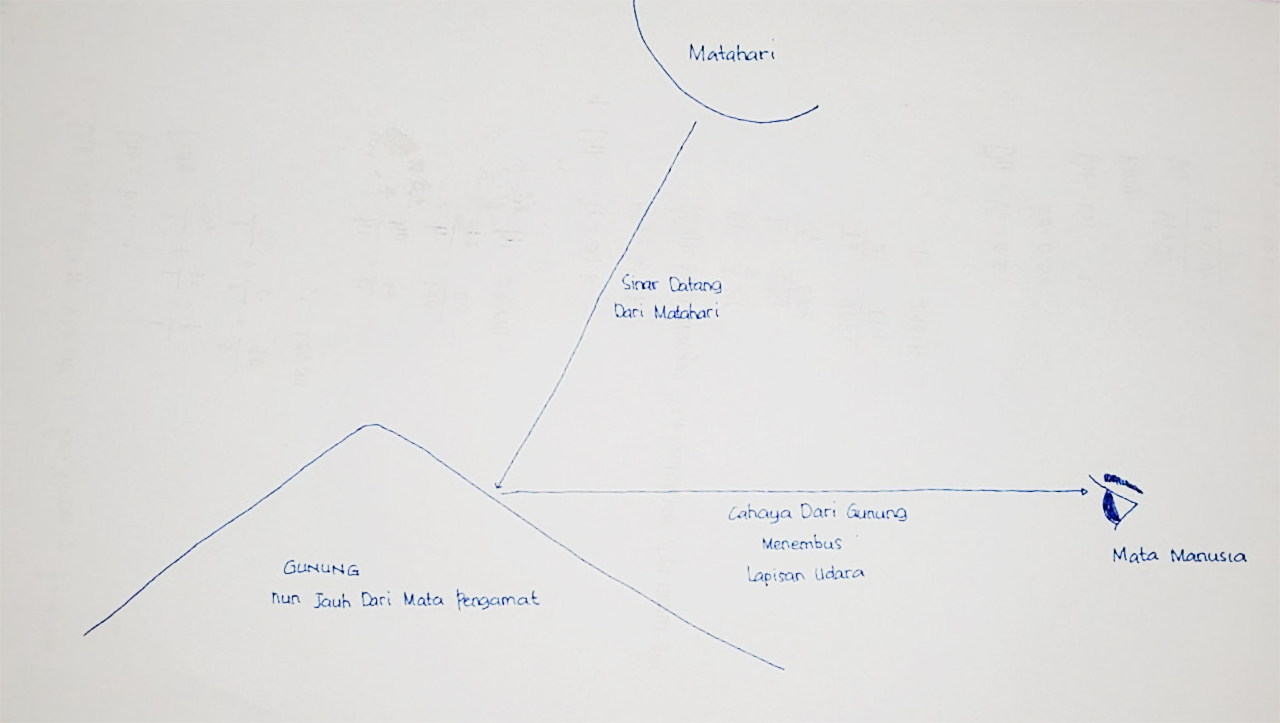 Matahari
Sinar Datang
Dari Matahari
Cahaya Dari Gunung
Menembus
Lapisan Udara
Mata Manusia
GUNUNG
nun Jauh Dari Mata Pengamat